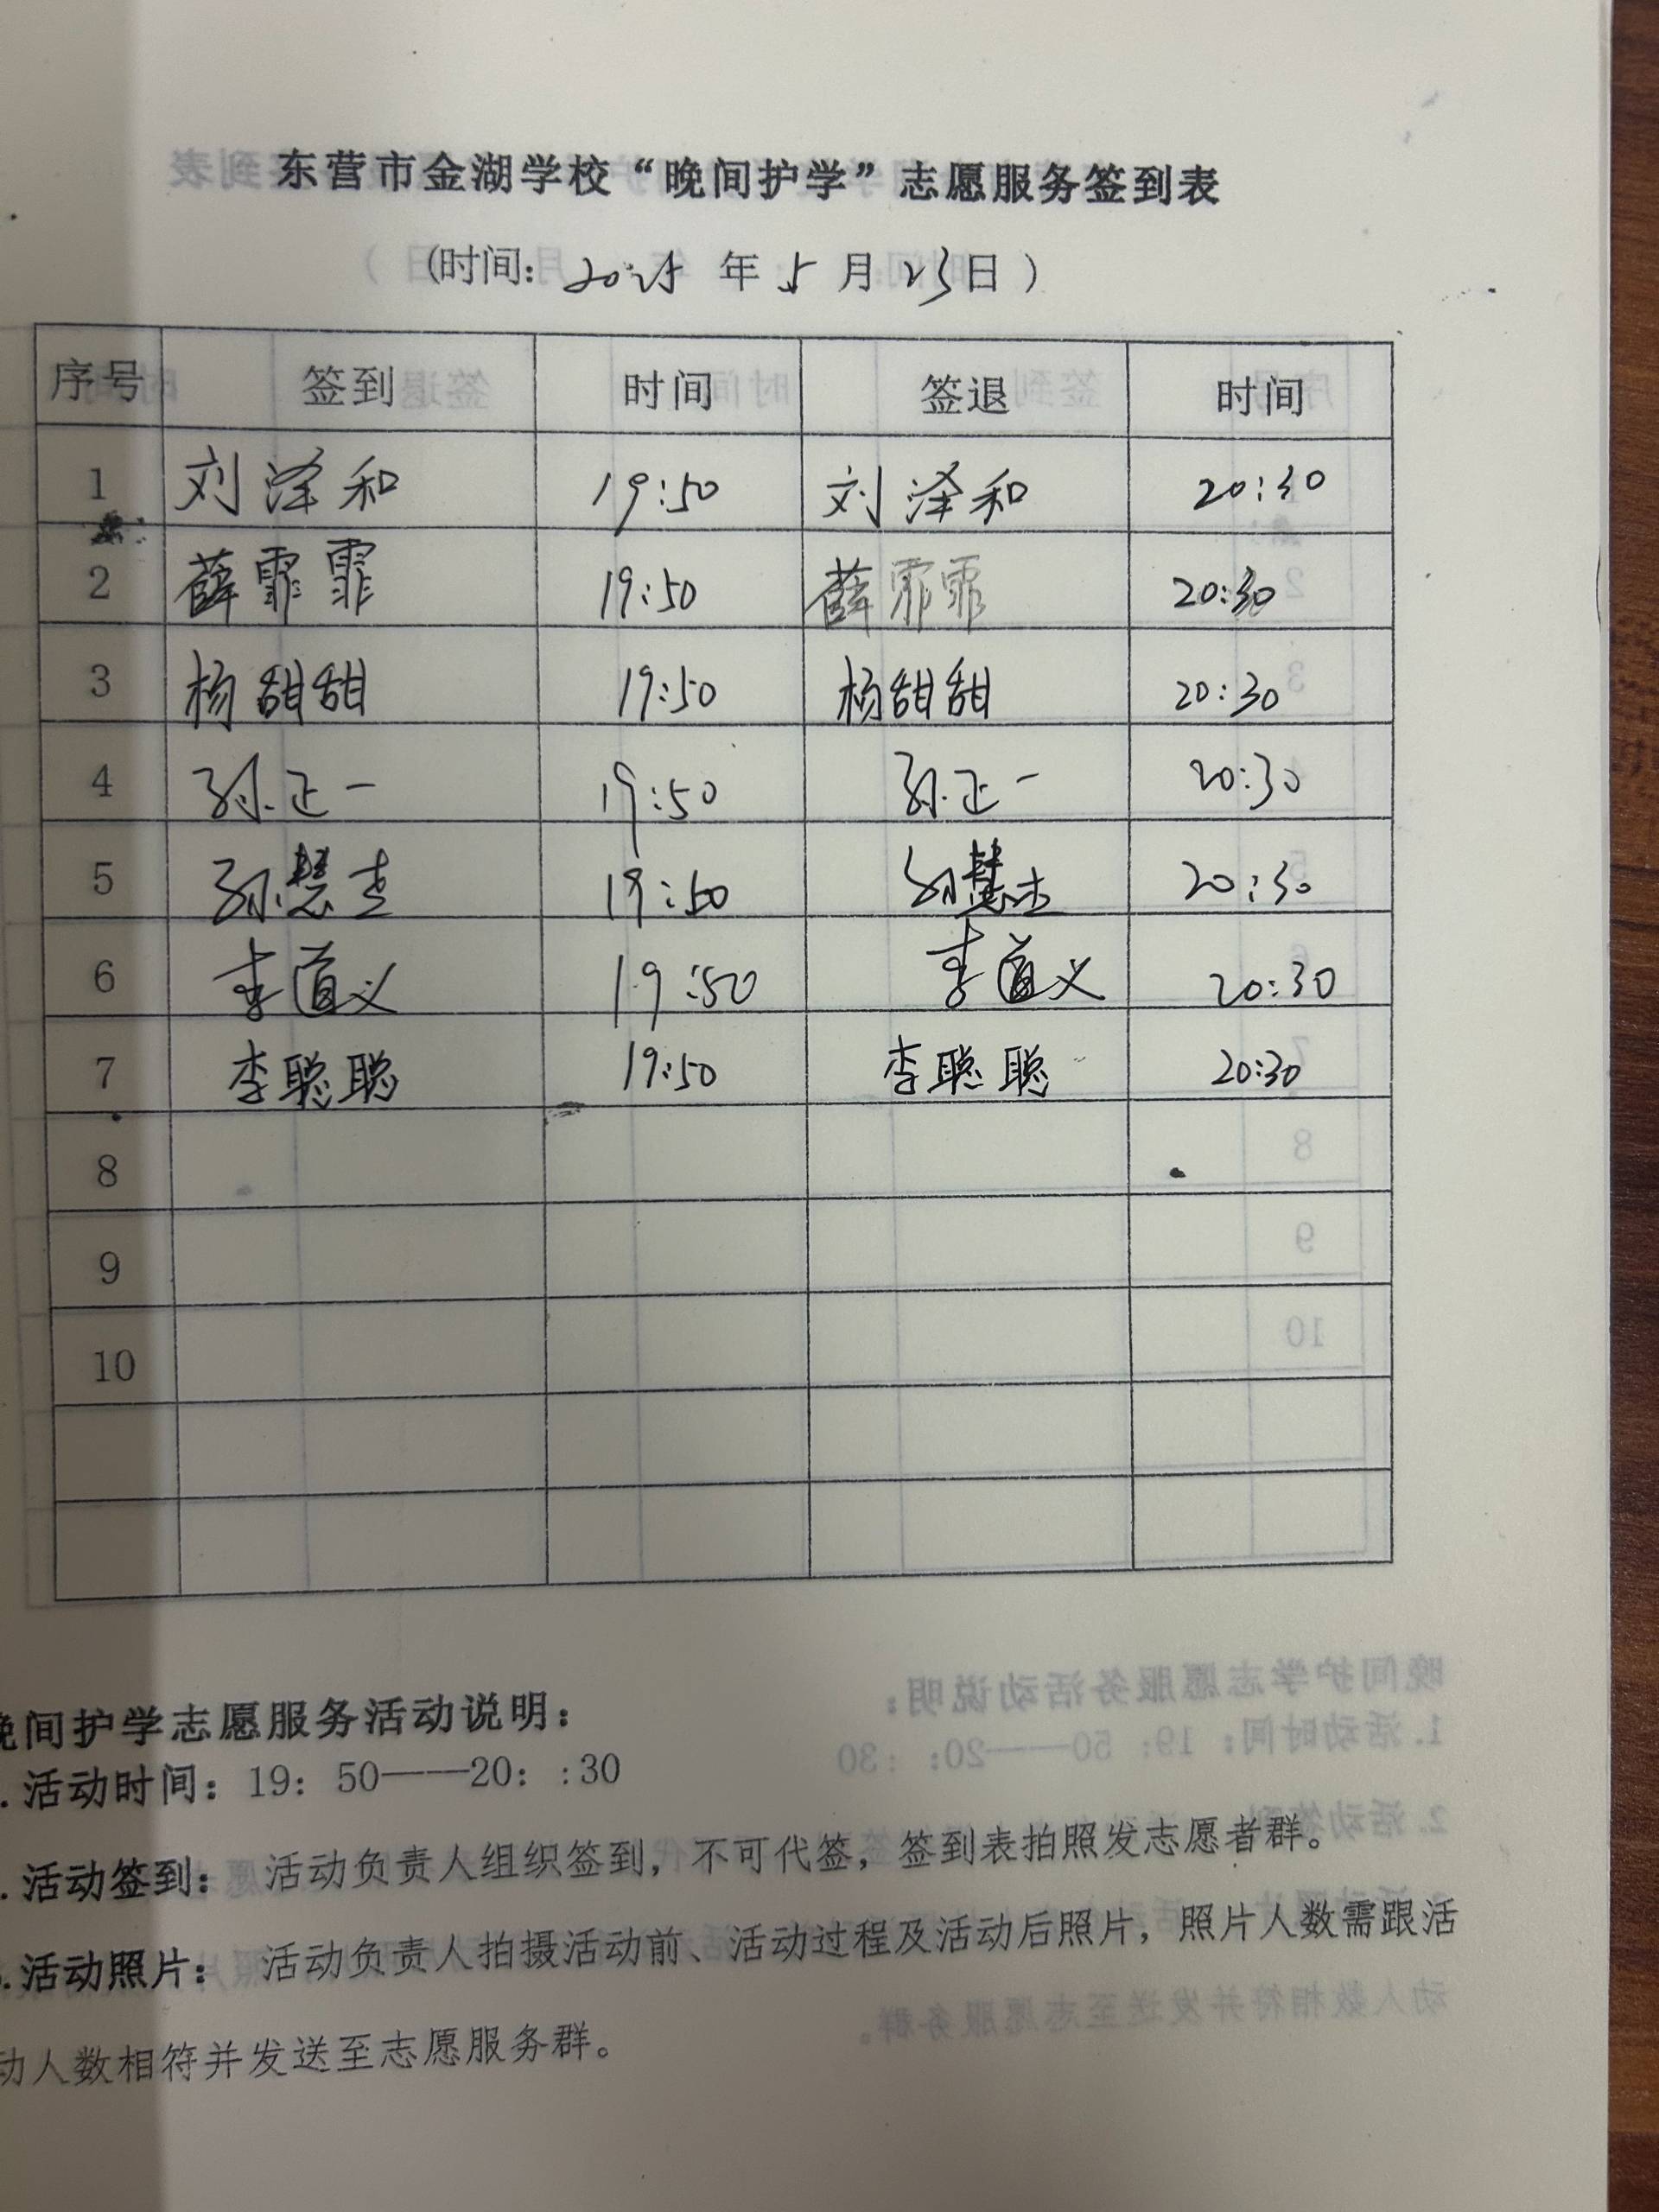 东营市金湖学校“晚间护学”志愿服务签到表
(时间: 2025 年 5 月 23日 )
序号 签到 时间 签退 时间
1 刘泽和 19:50 刘泽和 20:30
2 薛霏霏 19:50 薛霏霏 20:30
3 杨甜甜 19:50 杨甜甜 20:30
4 孙正一 19:50 孙正一 20:30
5 孙慧 19:50 孙慧 20:30
6 李道义 19:50 李道义 20:30
7 李聪聪 19:50 李聪聪 20:30
8
9
10
晚间护学志愿服务活动说明：
.活动时间：19：50——20：:30
.活动签到： 活动负责人组织签到，不可代签，签到表拍照发志愿者群。
.活动照片： 活动负责人拍摄活动前、活动过程及活动后照片，照片人数需跟活
动人数相符并发送至志愿服务群。